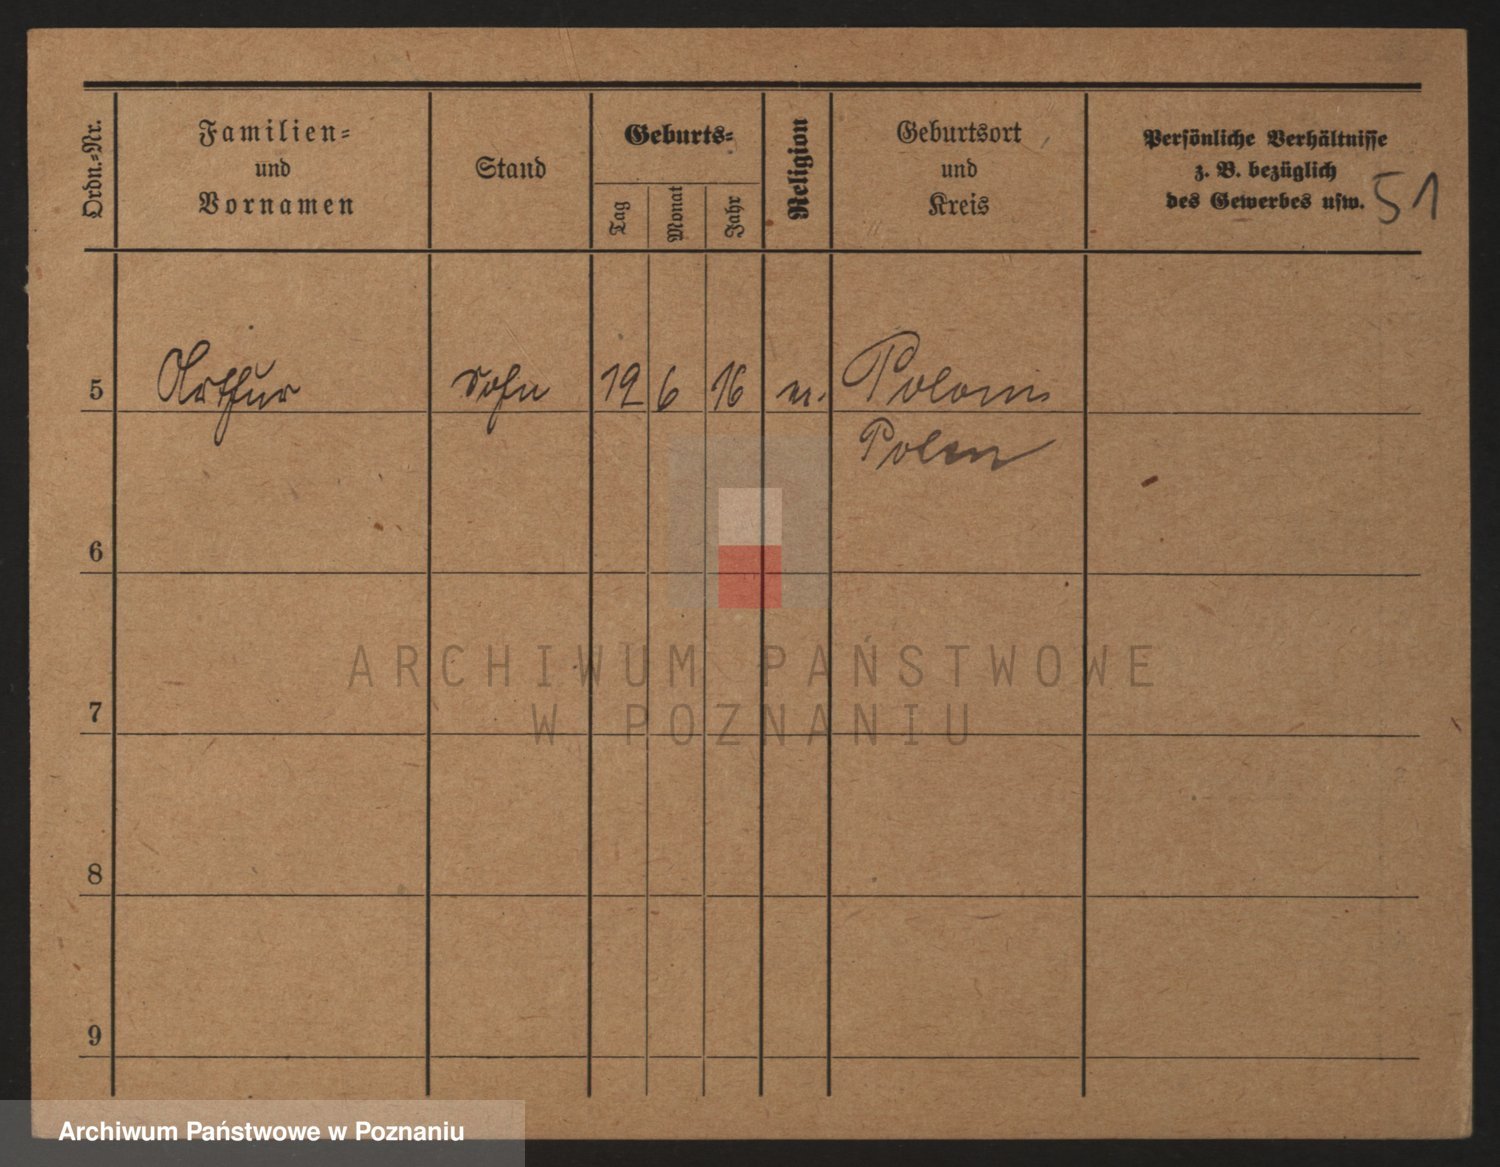 Ordn.-Nr.
Familien-
und
Vornamen
Stand
Geburts-
Tag
Monat
Jahr
Religion
Geburtsort
und
Kreis
Persönliche Verhältnisse
z. B. bezüglich
des Gewerbes usw.
51
5 Arthur Sohn 12 6 16
Polen
6
7
8
9
ARCHIWUM PAŃSTWOWE
W POZNANIU
Archiwum Państwowe w Poznaniu